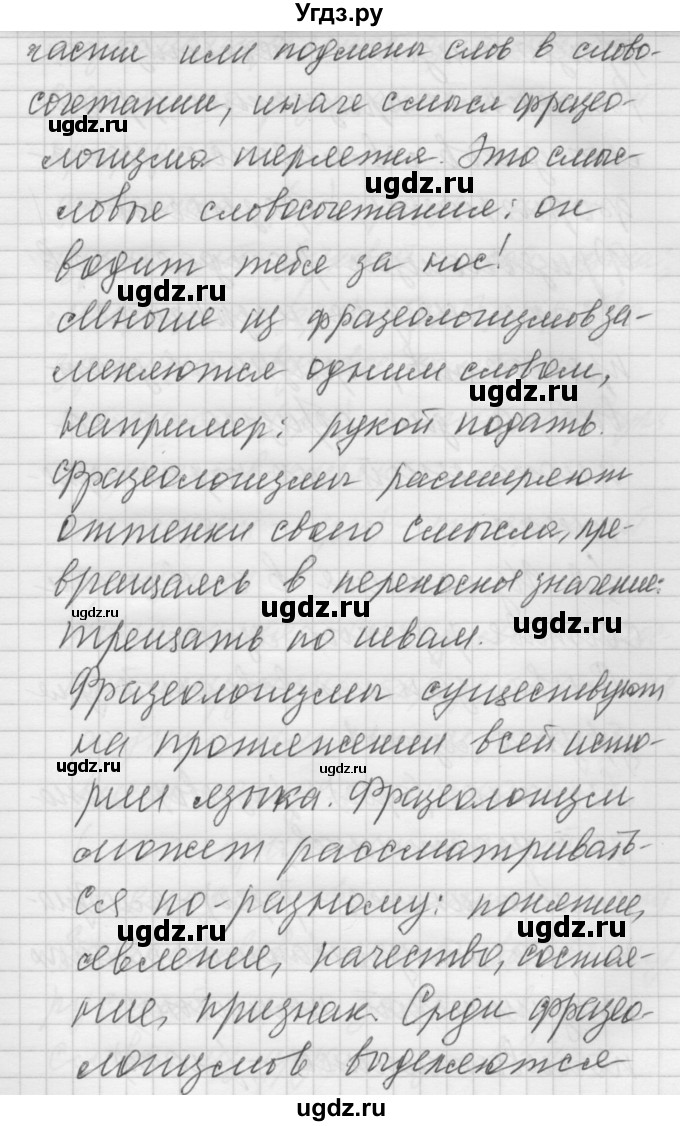 Угдз.ру
части или подмены слов в слово-
сочетании, иначе смысл фразео-
ugdz.ru
логизма теряется. Это смыс-
ugdz.ru
ловые словосочетания: он
водит тебя за нос!
ugdz.ru
Многие из фразеологизмов за-
меняются одним словом,
ugdz.ru
например: рукой подать.
Фразеологизмы расширяют
оттенки своего смысла, пре-
вращаясь в переносные значение:
ugdz.ru ugdz.ru ugdz.ru
трещать по швам.
Фразеологизмы существуют
на протяжении всей исто-
ugdz.ru ugdz.ru
рии языка. Фразеологизм
может рассматривать-
ся по-разному: понятие,
ugdz.ru ugdz.ru
явление, качество, состоя-
ние, признак. Среди фразео-
логизмов выделяются
ugdz.ru
ugdz.ru